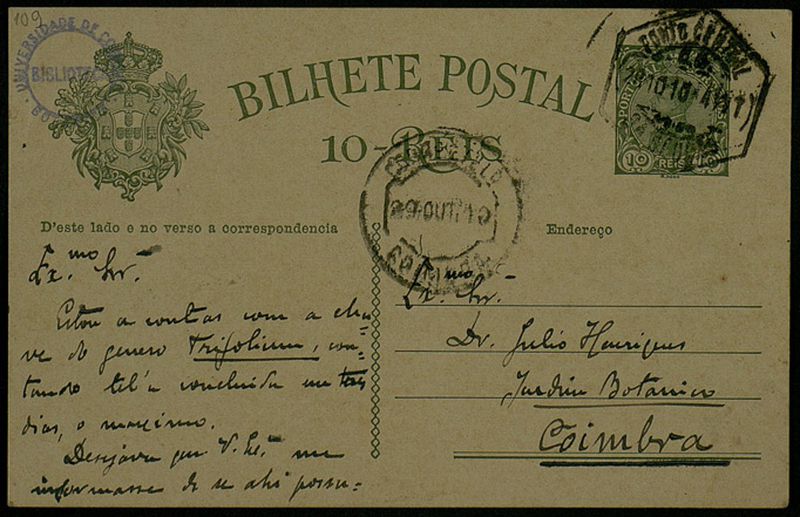 109
UNIVERSIDADE DE
BIBLIOTECA
BILHETE POSTAL
10-REIS
PORTO CENTRAL
PORTUGAL
10 REIS 10
29 OUT. 10
COIMBRA
D'este lado e no verso a correspondencia
Endereço
Ex.mo Snr.
Estou a contas com a cha-
ve do genero Trifolium, con-
tando tel'a concluida em tres
dias, o maximo.
Desejava que V. Ex.ª me
informasse de se ahi possu-
Ex.mo Snr.
Dr. Julio Henriques
Jardim Botanico
Coimbra